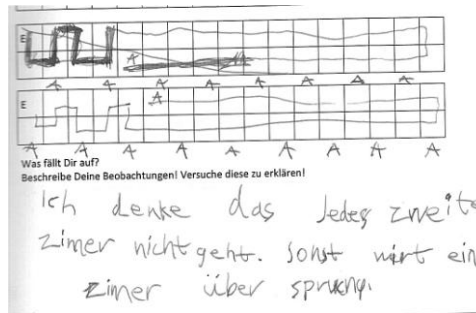 E
A
A A A A A A A A
E A
A A A A A A A A A
Was fällt Dir auf?
Beschreibe Deine Beobachtungen! Versuche diese zu erklären!
Ich denke das Jedes zweite
zimer nicht geht. sonst wirt ein
zimer über